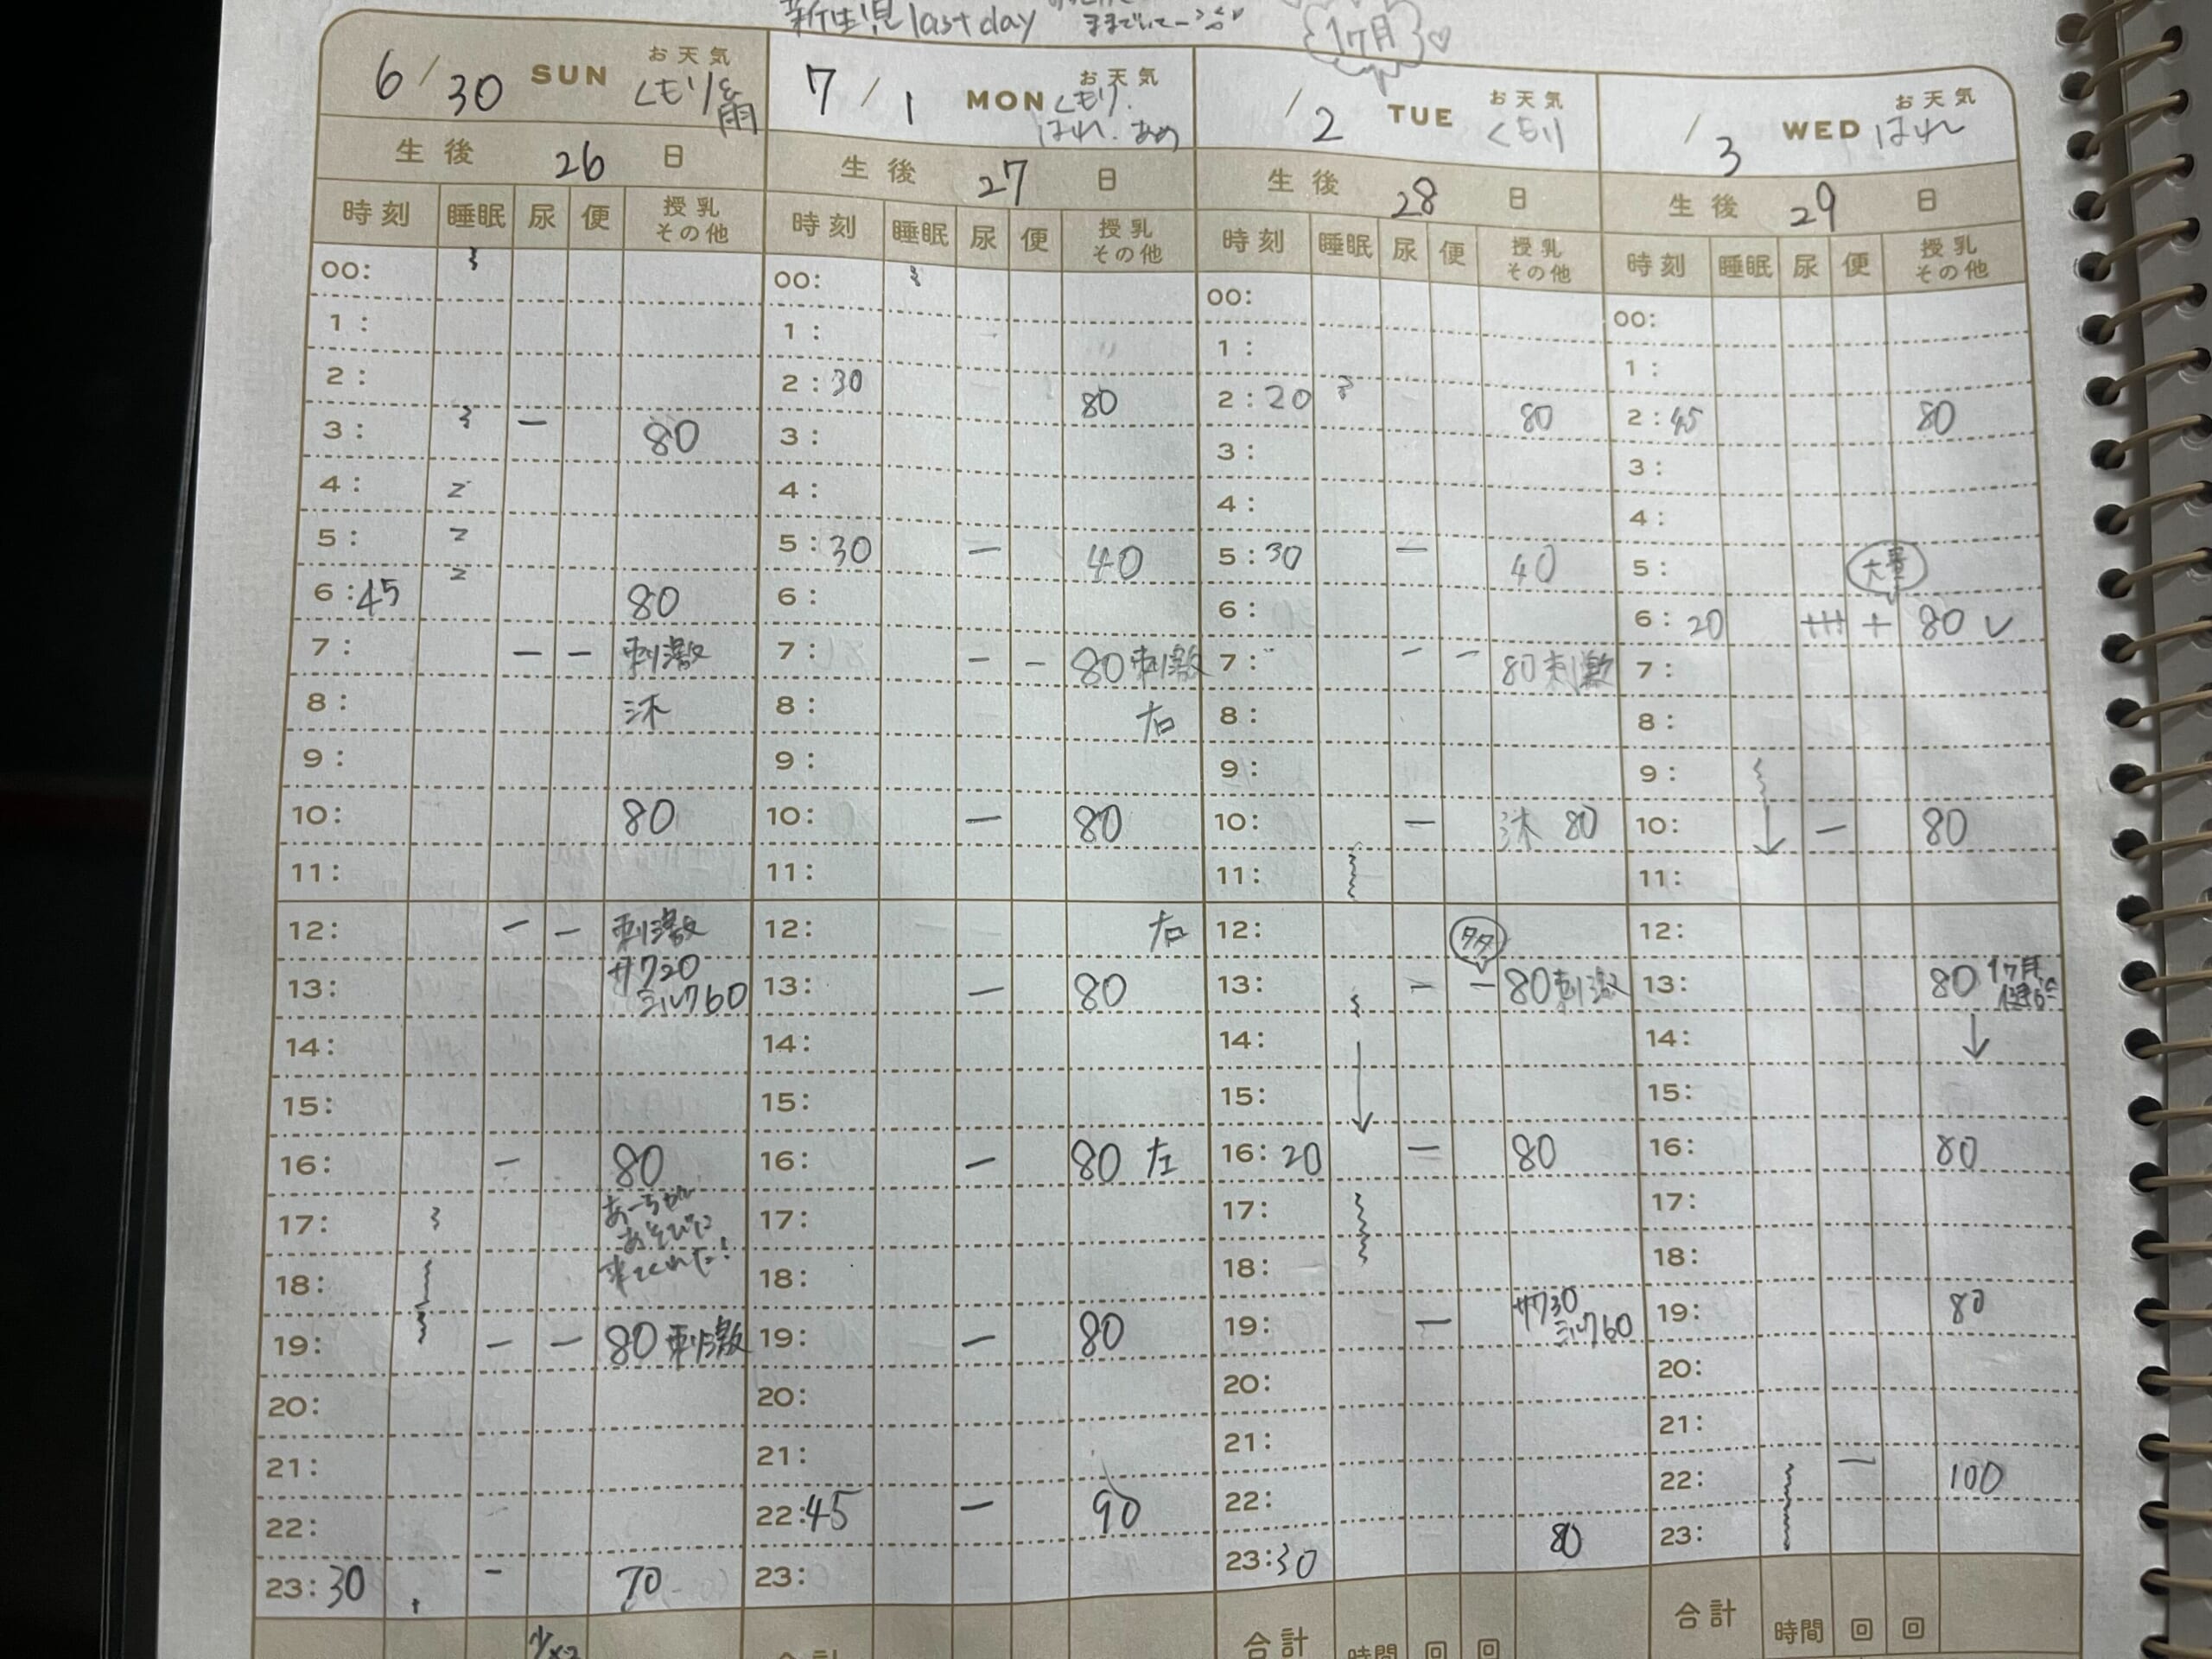 新生児last day
1ヶ月
6/30 SUN お天気 くもり&雨
生後 26 日
時刻 睡眠 尿 便 授乳 その他
00:
1:
2:
3: 80
4: z
5: z
6:45 z 80
7: ー ー 刺激
8: 沐
9:
10: 80
11:
12: ー ー 刺激
13: サク20 ミルク60
14:
15:
16: ー 80
17: あそびに
18: 来てくれた!
19: ー ー 80 刺激
20:
21:
22:
23:30 ー 70
7/1 MON お天気 くもり. はれ.あめ
生後 27 日
時刻 睡眠 尿 便 授乳 その他
00:
1:
2:30 80
3:
4:
5:30 ー 40
6:
7: ー ー 80 刺激
8: 右
9:
10: ー 80
11:
12: 右
13: ー 80
14:
15:
16: ー 80 左
17:
18:
19: ー 80
20:
21:
22:45 ー 90
23:
合計
/2 TUE お天気 くもり
生後 28 日
時刻 睡眠 尿 便 授乳 その他
00:
1:
2:20 80
3:
4:
5:30 ー 40
6:
7: ー ー 80 刺激
8:
9:
10: ー 沐 80
11:
12: 多
13: ー ー 80 刺激
14:
15:
16:20 ー 80
17:
18:
19: ー サク30 ミルク60
20:
21:
22:
23:30 80
合計 時間 回 回
/3 WED お天気 はれ
生後 29 日
時刻 睡眠 尿 便 授乳 その他
00:
1:
2:45 80
3:
4:
5: 大量
6:20 +++ + 80 ✓
7:
8:
9:
10: ↓ ー 80
11:
12:
13: 80 1ヶ月健診
14: ↓
15:
16: 80
17:
18:
19: 80
20:
21:
22: ー 100
23:
合計 時間 回 回